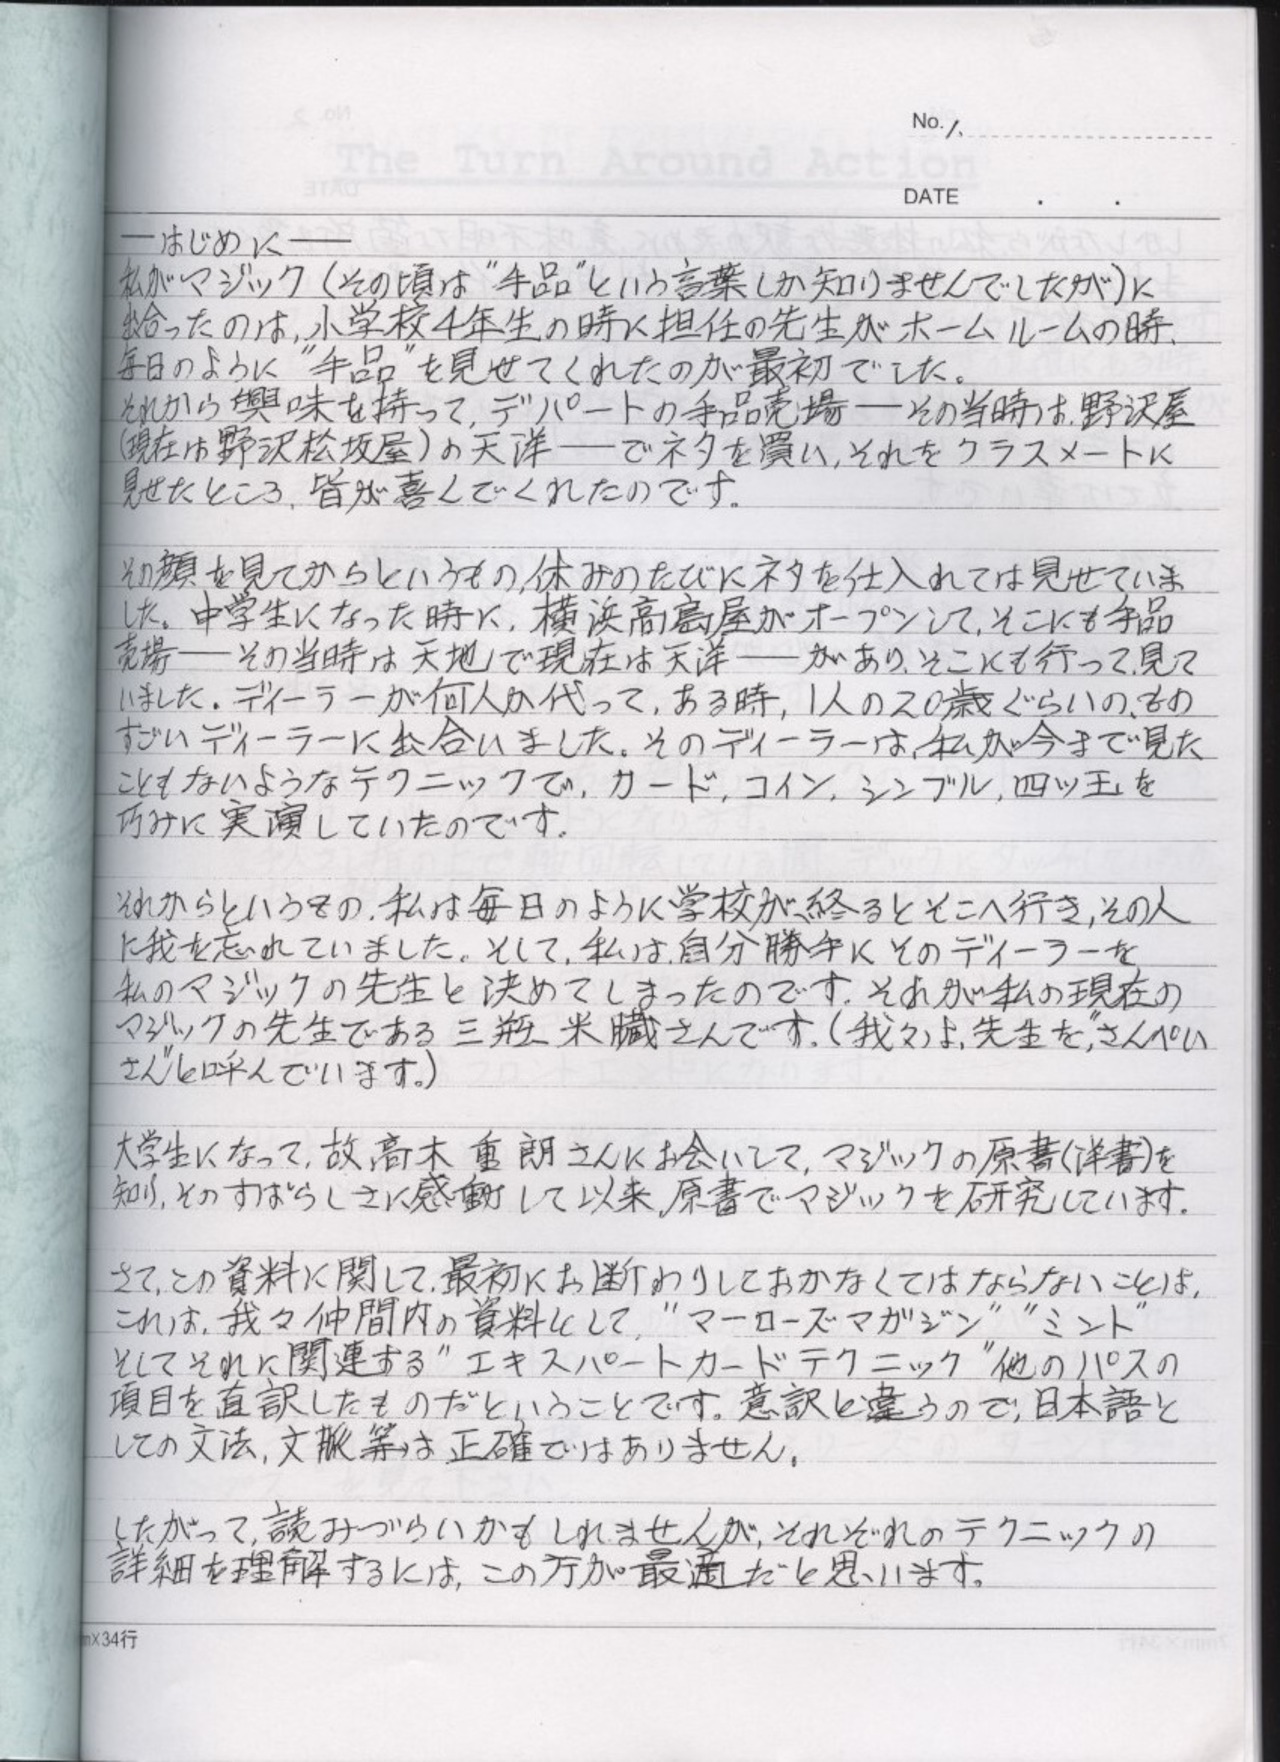 No. 1.
DATE . .
──はじめに──
私がマジック(その頃は"手品"という言葉しか知りませんでしたが)に
出合ったのは、小学校4年生の時に担任の先生がホームルームの時、
毎日のように"手品"を見せてくれたのが最初でした。
それから興味を持って、デパートの手品売場──その当時は、野沢屋
(現在は野沢松坂屋)の天洋──でネタを買い、それをクラスメートに
見せたところ、皆が喜んでくれたのです。
その顔を見てからというもの、休みのたびにネタを仕入れては見せていま
した。中学生になった時に、横浜高島屋がオープンして、そこにも手品
売場──その当時は天地で現在は天洋──があり、そこにも行って見て
いました。ディーラーが何人か代って、ある時、1人の20歳ぐらいの、もの
すごいディーラーに出合いました。そのディーラーは、私が今まで見た
こともないようなテクニックで、カード、コイン、シンブル、四ツ玉を
巧みに実演していたのです。
それからというもの、私は毎日のように学校が終るとそこへ行き、その人
に我を忘れていました。そして、私は、自分勝手にそのディーラーを
私のマジックの先生と決めてしまったのです。それが私の現在の
マジックの先生である三瓶 米臓さんです。(我々は、先生を、"さんぺい
さん"と呼んでいます。)
大学生になって、故高木重朗さんにお会いして、マジックの原書(洋書)を
知り、そのすばらしさに感動して以来、原書でマジックを研究しています。
さて、この資料に関して、最初にお断わりしておかなくてはならないことは、
これは、我々仲間内の資料として、"マーローズマガジン""ミント"
そしてそれに関連する"エキスパートカードテクニック"他のパスの
項目を直訳したものだということです。意訳と違うので、日本語と
しての文法、文脈等は正確ではありません。
したがって、読みづらいかもしれませんが、それぞれのテクニックの
詳細を理解するには、この方が最適だと思います。
m×34行